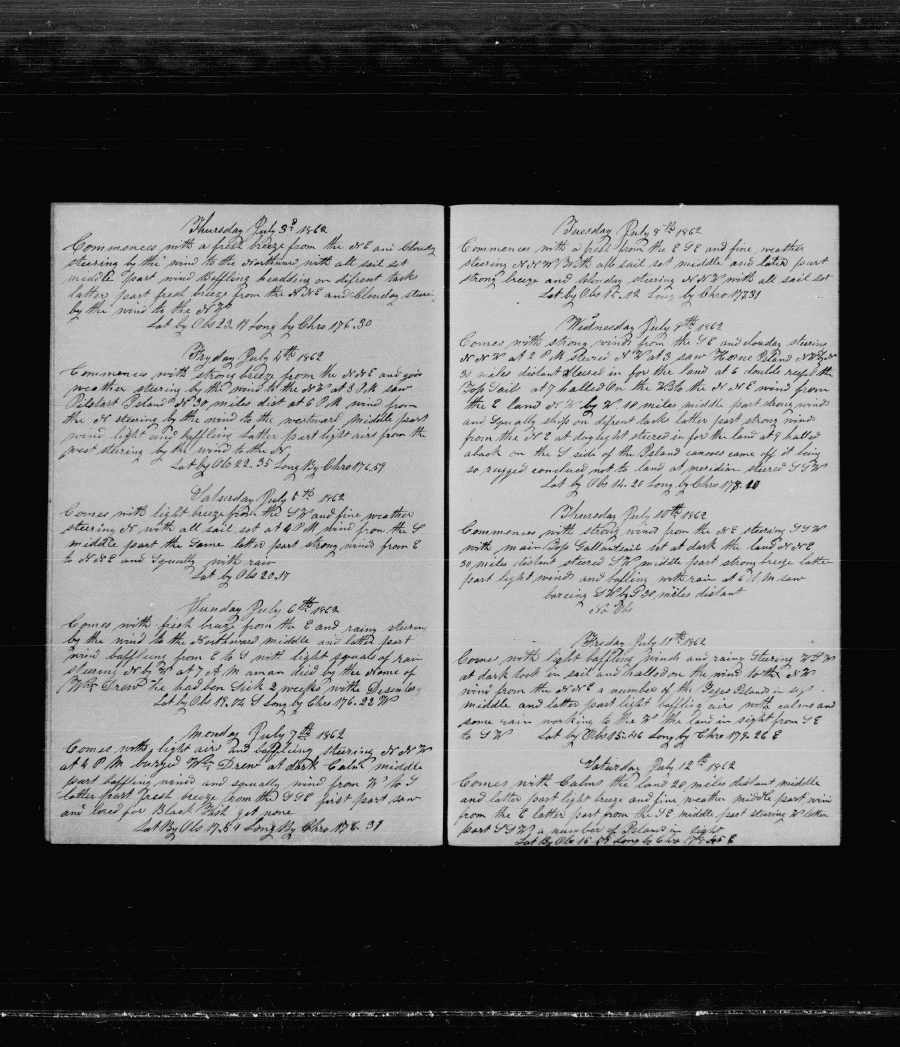 Thursday July 3d 1862
Commences with a fresh breeze from the NE and Cloudy
steering by the wind to the Northward with all sail set
middle part wind Baffling headding on difrent tacks
latter part fresh breeze from the NNE and Clouday steering
by the wind to the NW
Lat by Obs 23.17 Long by Chro 176.30
Fryday July 4th 1862
Commences with strong breeze from the NNE and
weather steering by the wind to the NW at 3 PM saw
Pilstart Island N 30 miles dist at 6 PM wind from
the N steering by the wind to the westward middle part
wind light and baffling latter part light airs from the
west steering by the wind to the N
Lat by Obs 22.35 Long By Chro 176.59
Saturday July 5th 1862
Comes with light breeze from the SW and fine weather
steering N with all sail set at 4 PM wind from the S
middle part the Same latter part strong winds from E
to NNE and Squally with rain
Lat by Obs 20.17
Sunday July 6th 1862
Comes with fresh breeze from the E and rainy steering
by the wind to the Northward middle and latter part
wind baffling from E to S with light squals of rain
stearing N by W at 7 AM a man died by the Name of
Wm Drew he had ben Sick 2 weeks withe Desintery
Lat by Obs 19.04 S Long by Chro 176.22 W
Monday July 7th 1862
Comes with light airs and baffling steering NNW
at 4 PM burryed Wm Drew at dark Calm middle
part baffling winds and squally wind from W to S
latter part fresh breeze from the SSE first part saw
and lored for Black Fish got none
Lat By Obs 17.54 Long By Chro 176.31
Tuesday July 8th 1862
Commences with a fresh from the ESE and fine weather
steering NNW With all sail set middle and later part
strong breeze and Clouday steering NNW with all sail set
Lat by Obs 15.12 Long by Chro 177.31
Wednesday July 9th 1862
Comes with strong winds from the SE and clouday steering
NNW at 2 PM steered NW at 3 saw Horne Island NW by N
30 miles distant steered in for the land at 6 double reefed the
Top Sails at 7 halled On the Wind to the NNE wind from
the E land NW by W 18 miles middle part strong winds
and Squally ships on difrent tack latter part strong winds
from the NE at daylight steered in for the land at 9 halled
aback on the S side of the Island canoes came off it being
so rugged concluded not to land at meridian steered SSW
Lat by Obs 14.20 Long by Chro 178.20
Thursday July 10th 1862
Commences with strong wind from the NE steering SSW
with main Top Gallantsail set at dark the land NNE
30 miles distant steered SW middle part strong breeze latter
part light winds and bafling with rain at 6 AM saw
bareing SW by S 20 miles distant
No Obs
Fryday July 11th 1862
Comes with light baffling winds and rainy Steering WSW
at dark took in sail and halled on the wind to the NW
wind from the NNE a number of the Islands in sight
middle and latter part light baffling airs with calms and
some rain working to the W the land in sight from SE
to SW Lat by Obs 15.46 Long by Chro 179.26 E
Saturday July 12th 1862
Comes with Calms the land 20 miles distant middle
and latter part light breeze and fine weather middle part wind
from the E latter part from the SE middle part stearing W latter
part SSW a number of Islands in sight
Lat By Obs 15.59 Long by Chro E